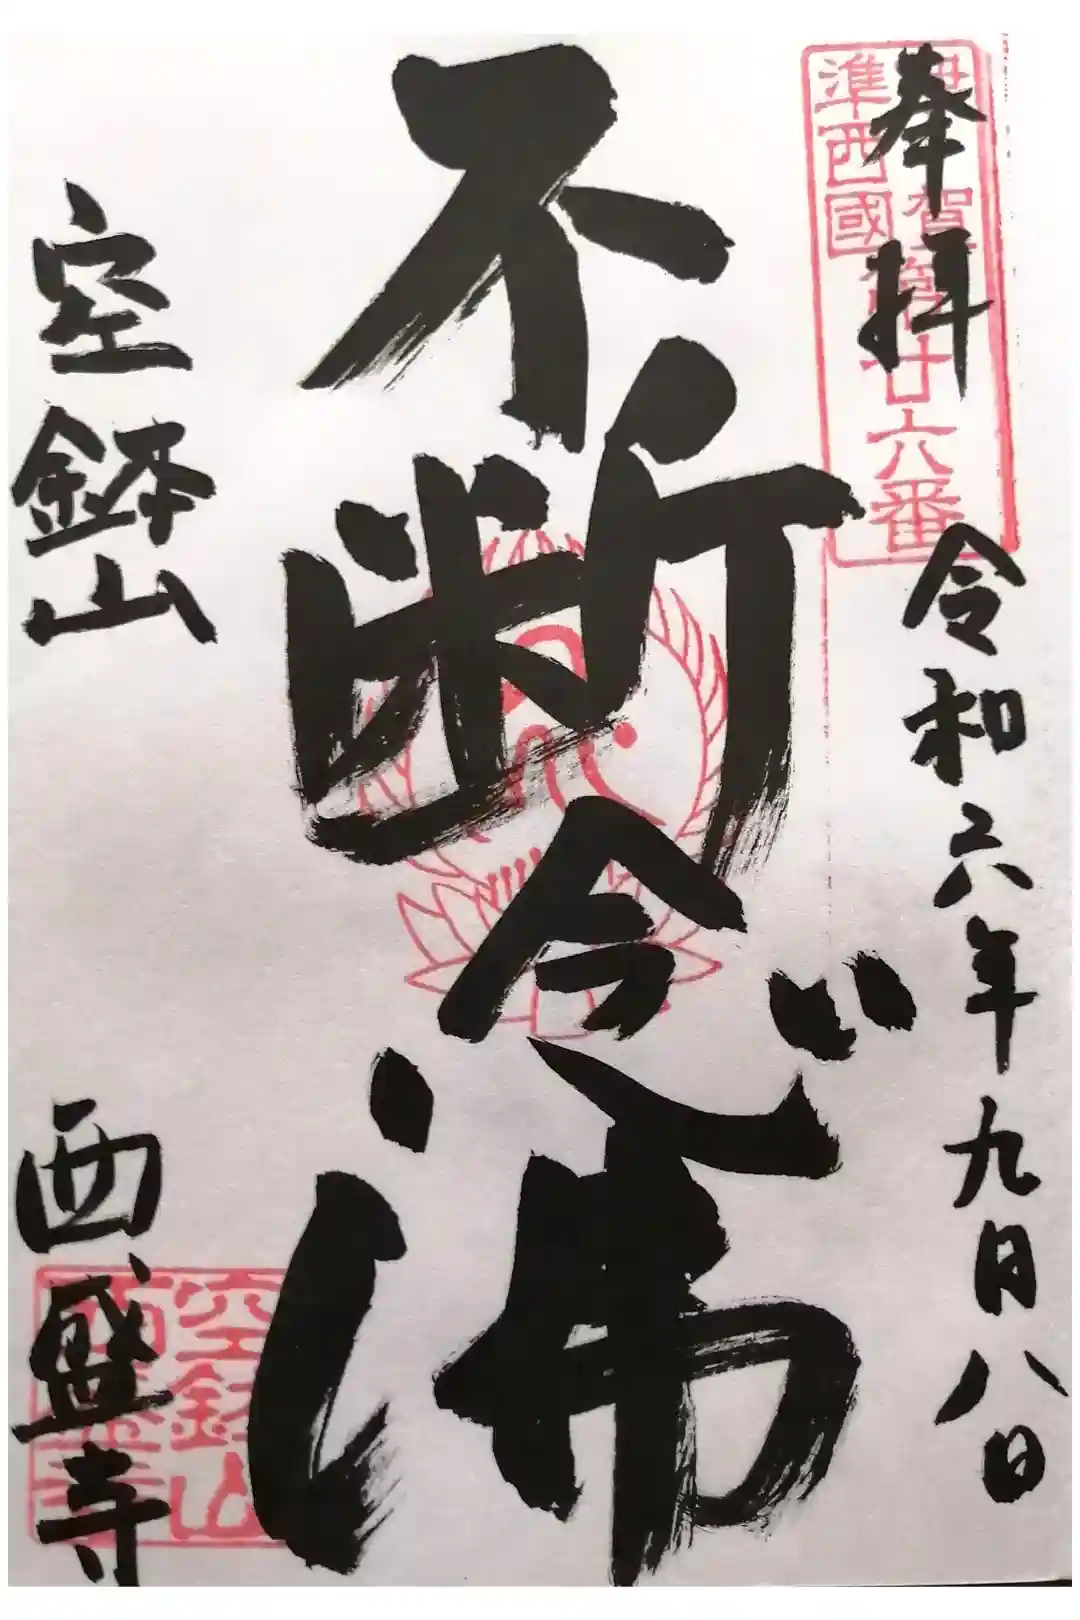 奉拝
令和六年九月八日
伊賀第廿六番
準西國
不断念佛
空鉢山
西盛寺
空鉢山
西盛寺